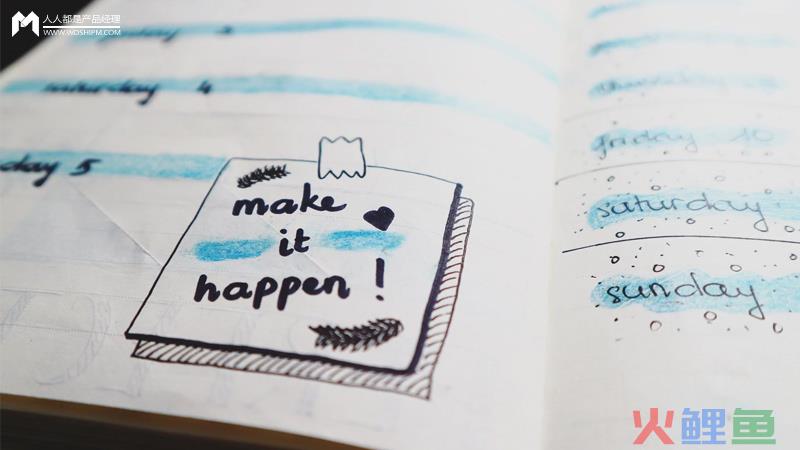 人人都是产品经理
WWW.WOSHIPM.COM
saturday 4
day 5
make
it
happen !
friday 10
saturday
sunday
火鲤鱼